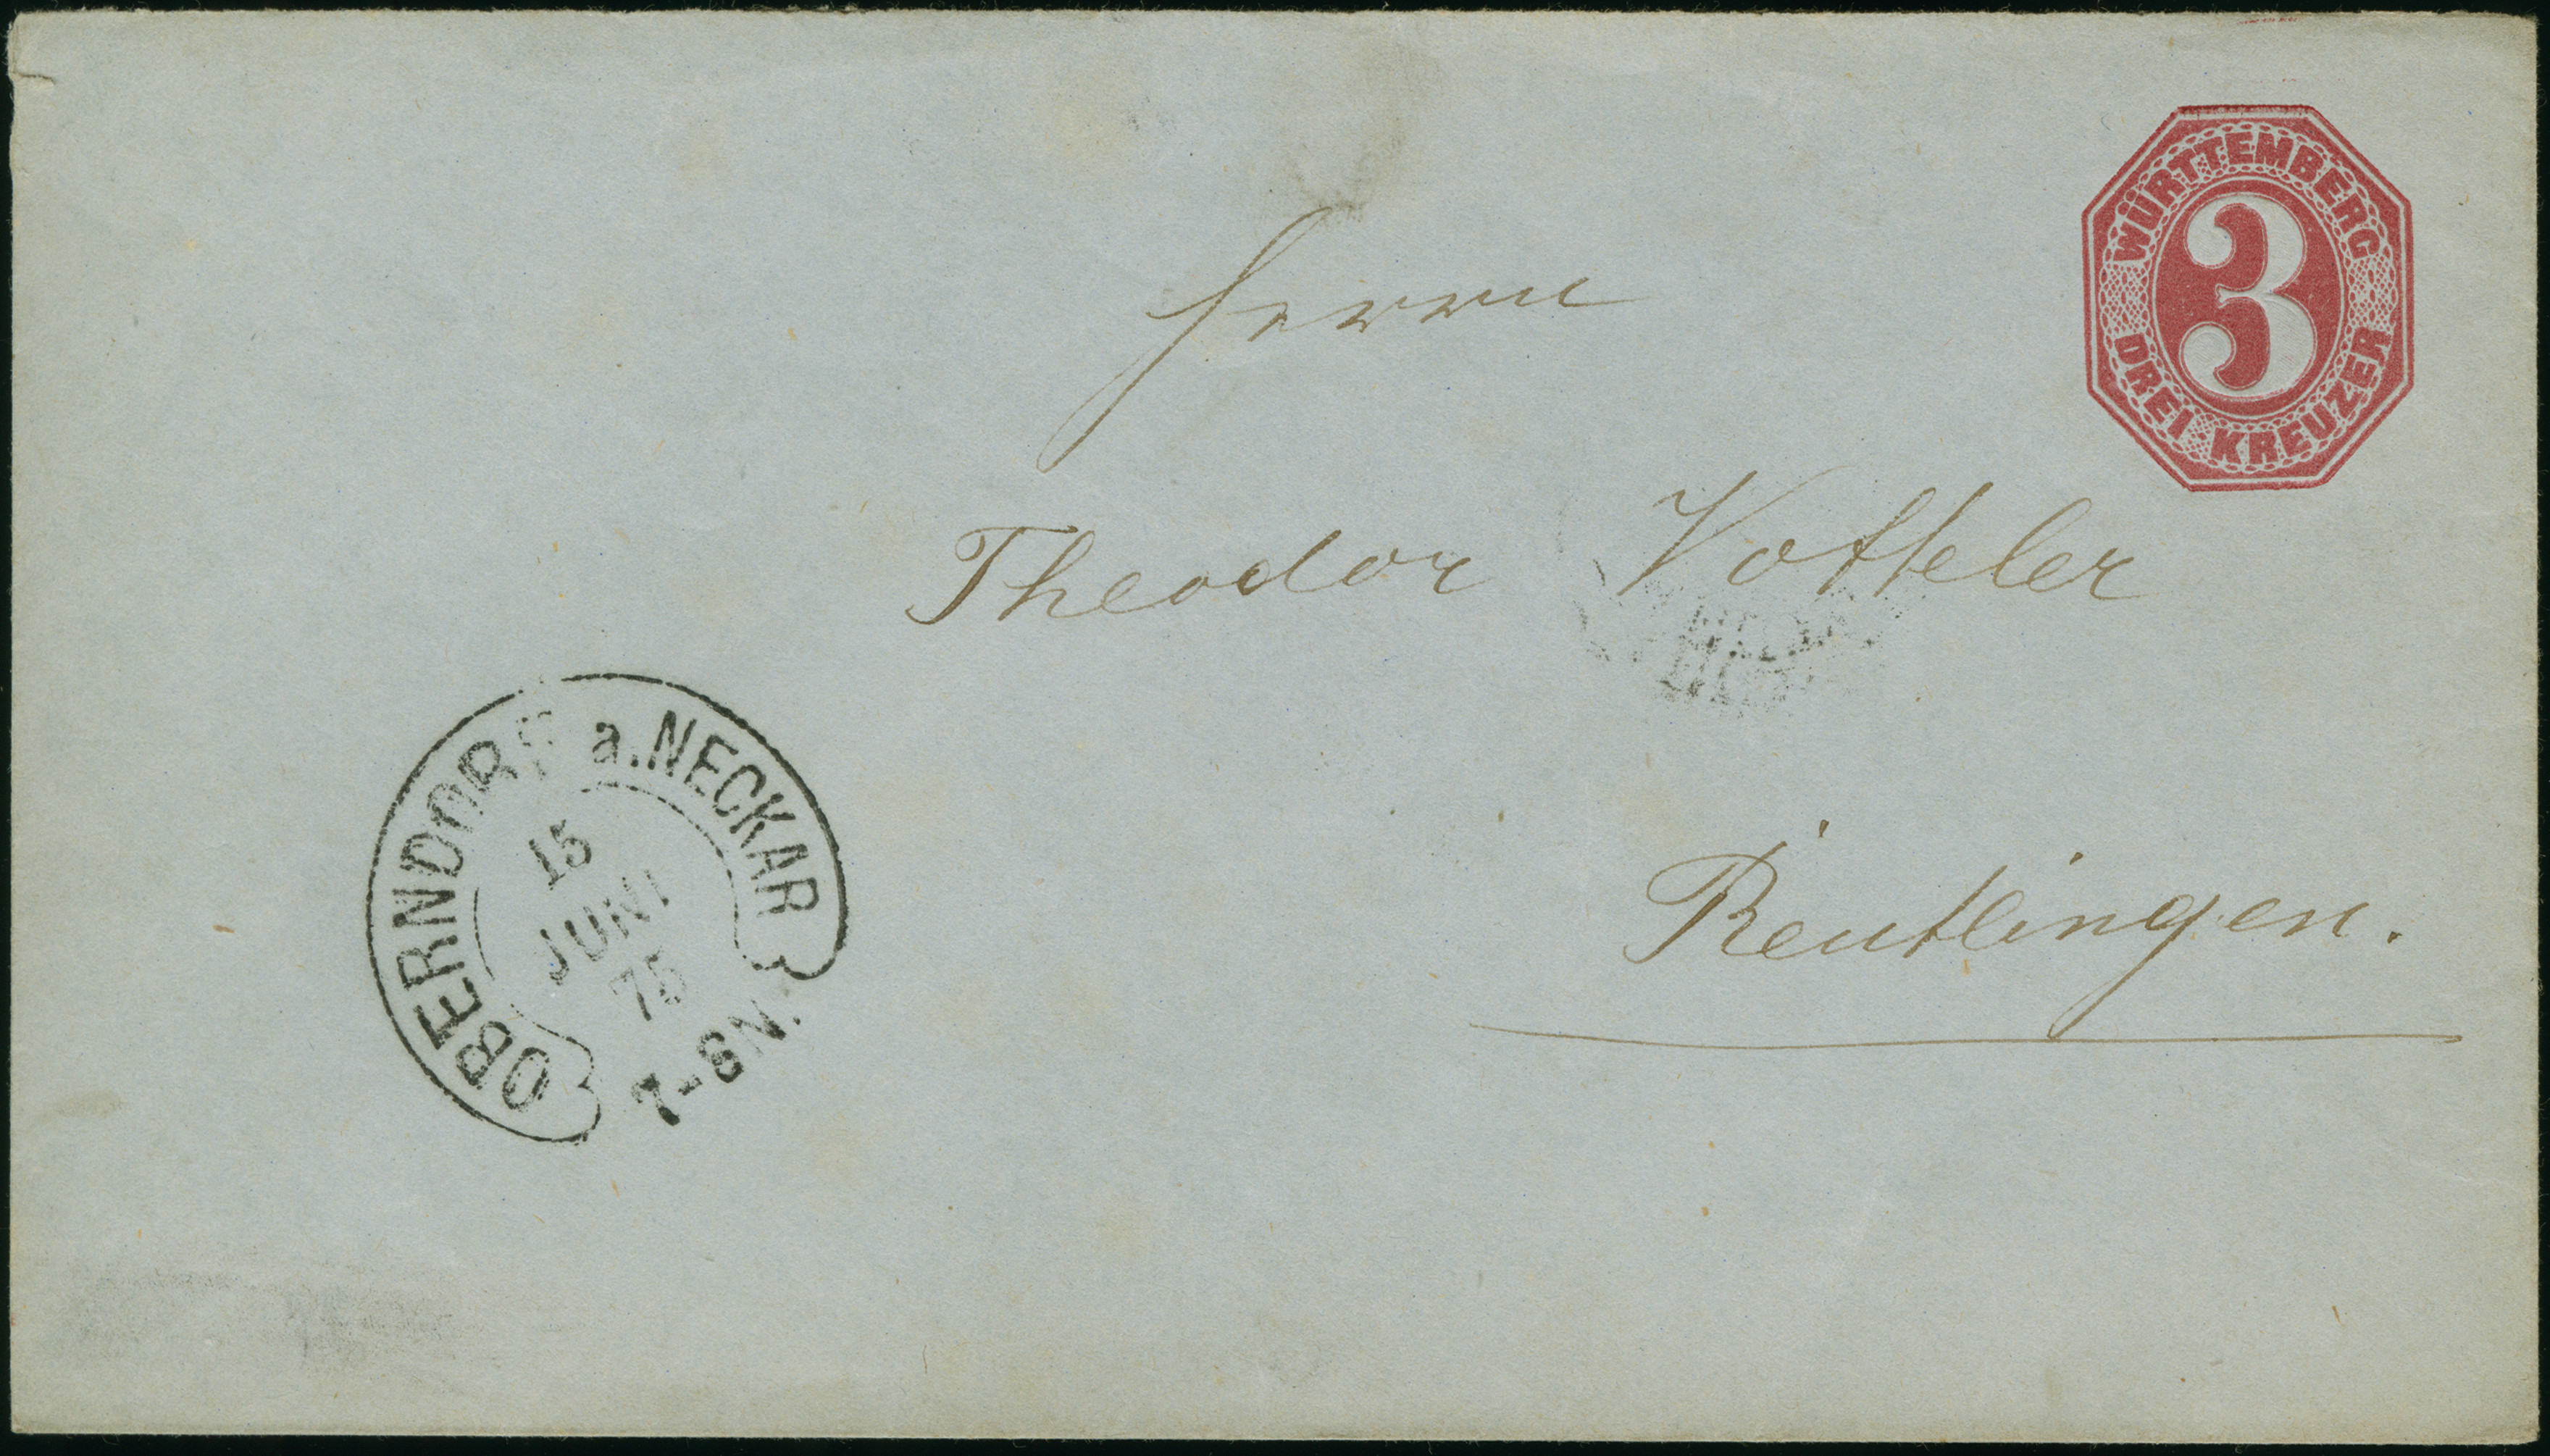 WÜRTTEMBERG
3
DREI KREUZER
Herrn
Theodor Votteler
Reutlingen.
OBERNDORF a. NECKAR
15
JUNI
75
7-8N.